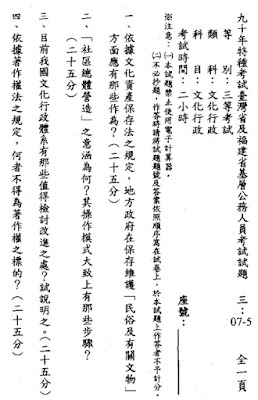 九十年特種考試臺灣省及福建省基層公務人員考試試題
三:07-5
全一頁
等　別：三等考試
類　科：文化行政
科　目：文化行政
考試時間：二小時
座號：
※注意：(一)本試題禁止使用電子計算器。
(二)不必抄題，作答時請將試題題號及答案依照順序寫在試卷上，於本試題上作答者不予計分。
一、依據文化資產保存法之規定，地方政府在保存維護「民俗及有關文物」
方面應有那些作為？（二十五分）
二、「社區總體營造」之意涵為何？其操作模式大致上有那些步驟？
（二十五分）
三、目前我國文化行政體系有那些值得檢討改進之處？試說明之。（二十五分）
四、依據著作權法之規定，何者不得為著作權之標的？（二十五分）